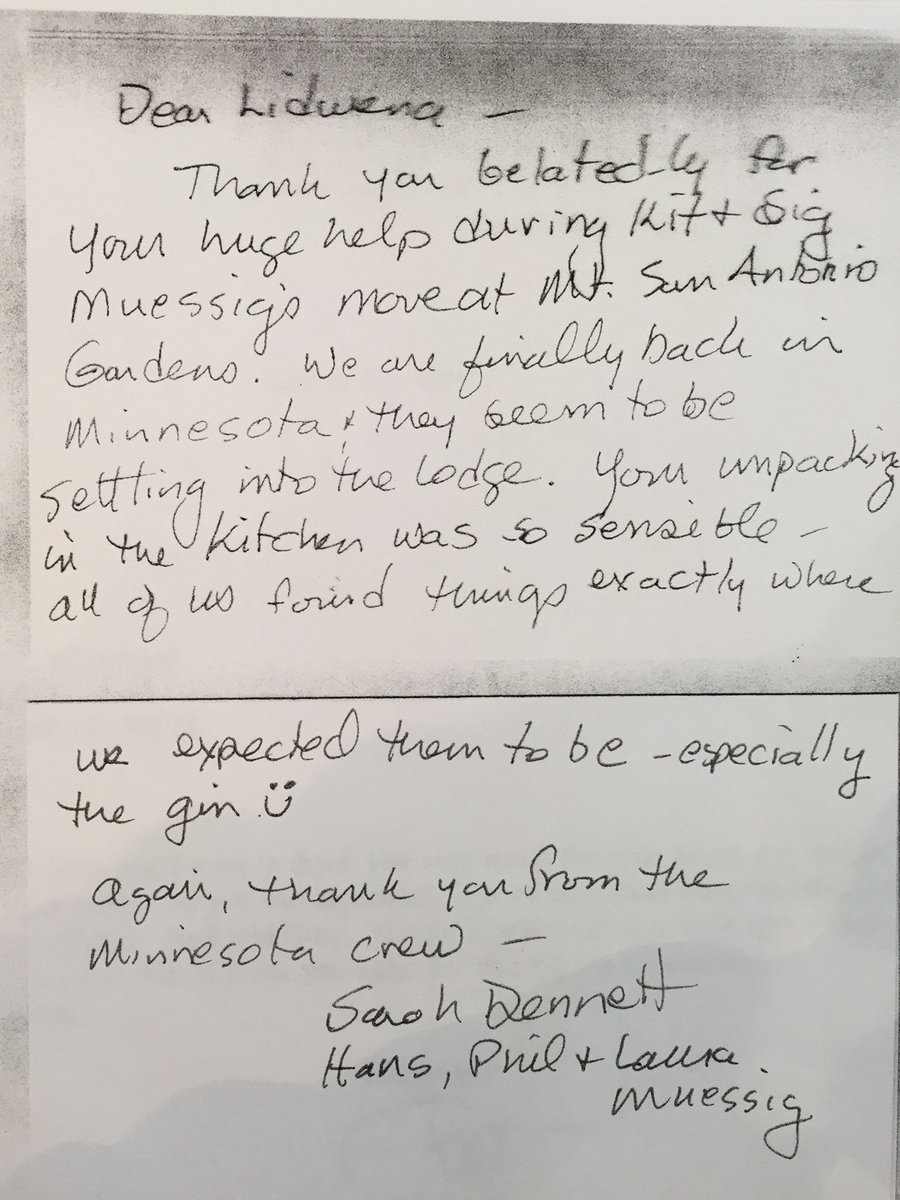 Dear Lidwena —
Thank you belatedly for
your huge help during Kit + Sig
Muessig's move at Mt. San Antonio
Gardens. We are finally back in
Minnesota, & they seem to be
settling into the Lodge. Your unpacking
in the kitchen was so sensible –
all of us found things exactly where
we expected them to be – especially
the gin ☺
Again, thank you from the
Minnesota crew —
Sarah Dennett
Hans, Phil + Laura
Muessig